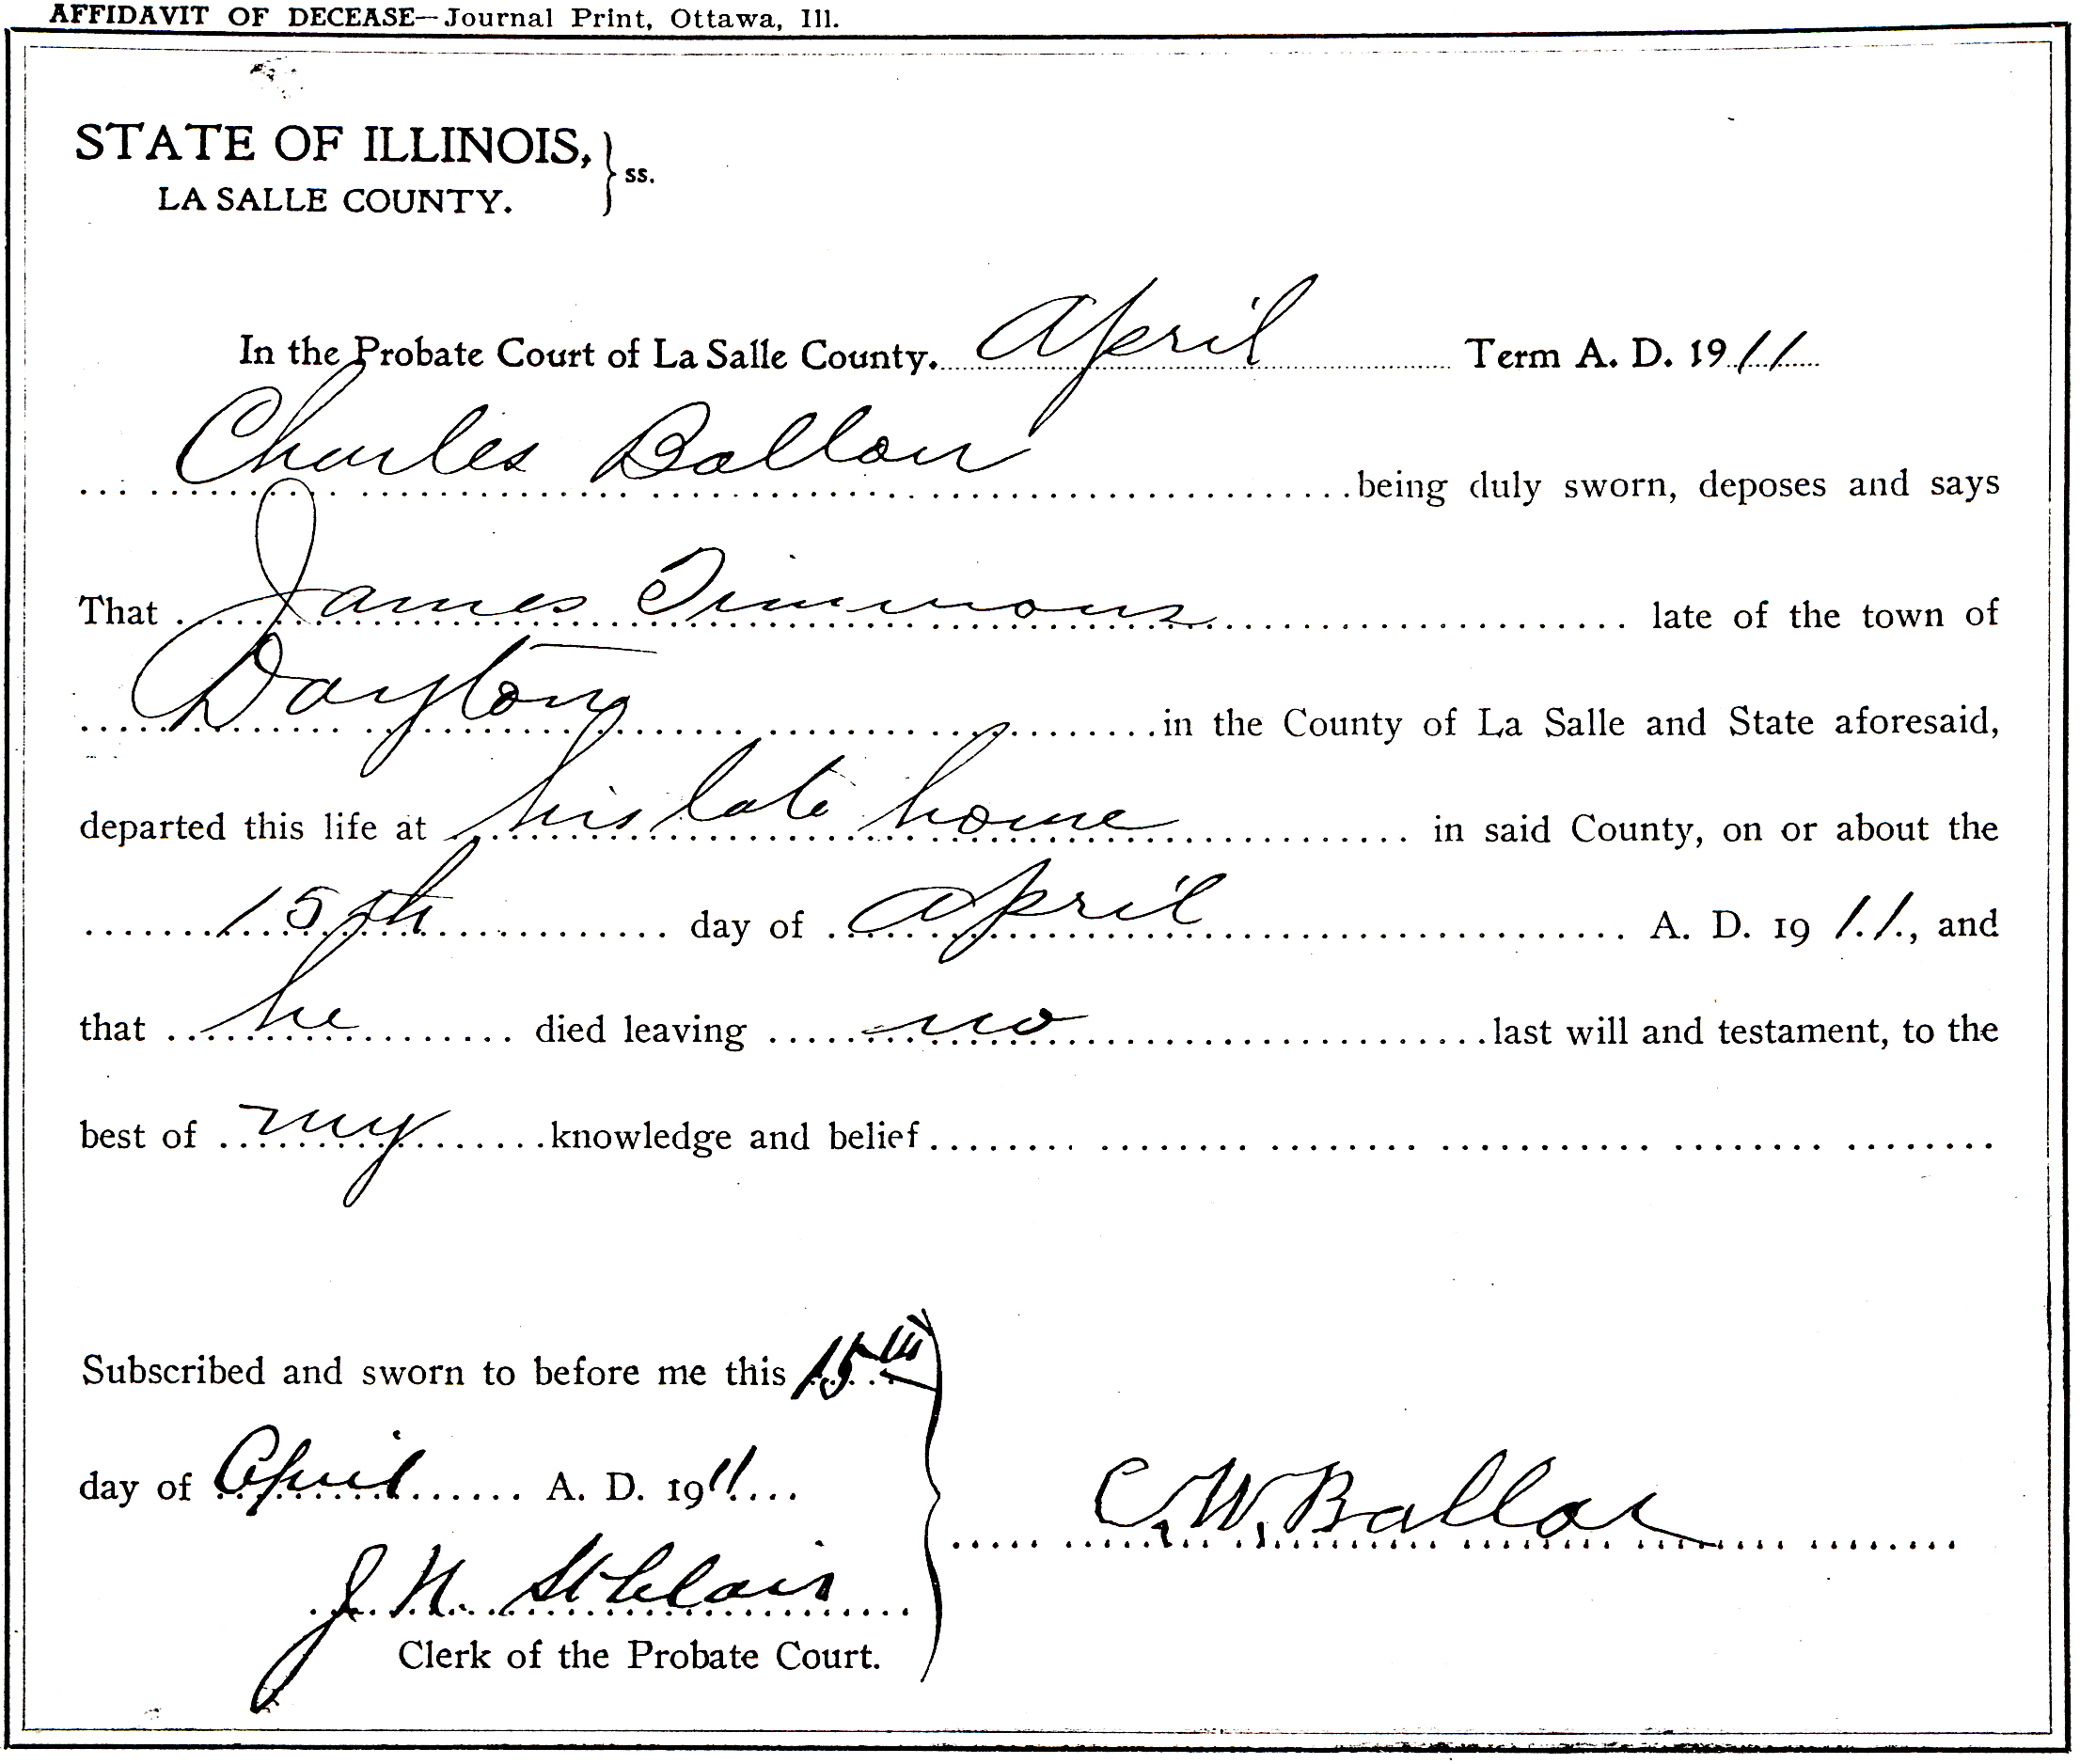 AFFIDAVIT OF DECEASE—Journal Print, Ottawa, Ill.
STATE OF ILLINOIS, } ss.
LA SALLE COUNTY.
In the Probate Court of La Salle County. April Term A. D. 1911
Charles Ballou being duly sworn, deposes and says
That James Timmons late of the town of
Dayton in the County of La Salle and State aforesaid,
departed this life at his late home in said County, on or about the
15th day of April A. D. 1911, and
that he died leaving no last will and testament, to the
best of my knowledge and belief
Subscribed and sworn to before me this 15th
day of April A. D. 1911
C. W. Ballou
J. N. St Clair
Clerk of the Probate Court.